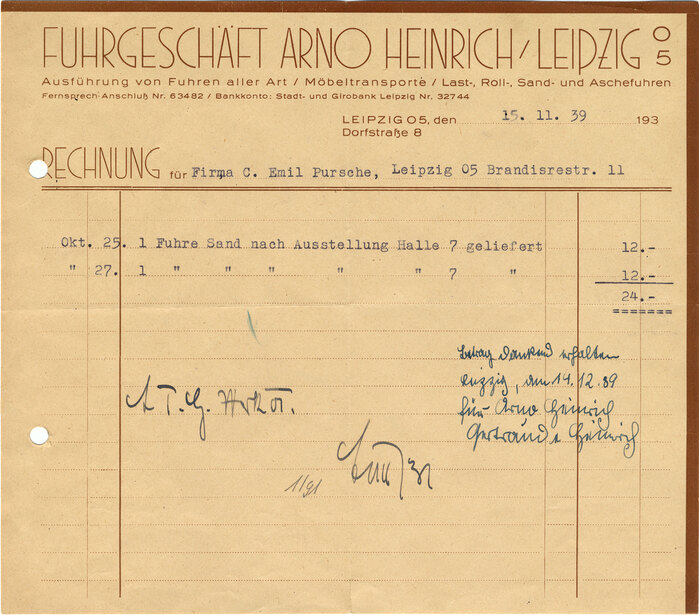 FUHRGESCHÄFT ARNO HEINRICH / LEIPZIG O 5
Ausführung von Fuhren aller Art / Möbeltransporte / Last-, Roll-, Sand- und Aschefuhren
Fernsprech-Anschluß Nr. 63482 / Bankkonto: Stadt- und Girobank Leipzig Nr. 32744
LEIPZIG O5, den 15. 11. 39 193
Dorfstraße 8
RECHNUNG für Firma C. Emil Pursche, Leipzig O5 Brandisrestr. 11
Okt. 25. 1 Fuhre Sand nach Ausstellung Halle 7 geliefert 12.-
" 27. 1 " " " " " 7 " 12.-
24.-
=======
Betrag dankend erhalten
Leipzig, den 14.12.39
für Arno Heinrich
Gertraude Heinrich